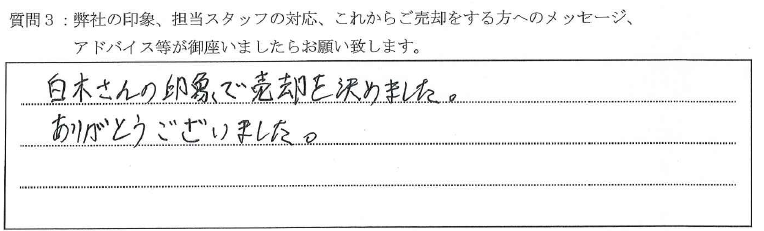 質問3：弊社の印象、担当スタッフの対応、これからご売却をする方へのメッセージ、
アドバイス等が御座いましたらお願い致します。
白木さんの印象で売却を決めました。
ありがとうございました。